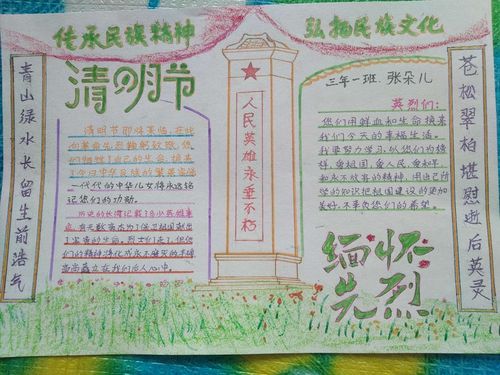 传承民族精神
弘扬民族文化
清明节
三年一班 张朵儿
青山绿水长留生前浩气
苍松翠柏堪慰逝后英灵
人民英雄永垂不朽
清明节即将来临，在此
向革命先烈鞠躬致敬，您
们牺牲了自己的生命，换来
了今日中华民族的繁荣富强
一代代的中华儿女将永远铭
记您们的功勋。
历史的长河记载了
了宝贵的生命。烈士们走了，但您
们的精神将化为永不磨灭的丰碑
高高矗立在我们后人心中。
英烈们：
您们用鲜血和生命换来
我们今天的幸福生活。
我要努力学习，以您们为榜
样，爱祖国，爱人民，爱和平，
和永不放弃的精神，用自己所
学的知识把祖国建设的更加
美好，不辜负您们的希望。
缅怀
先烈